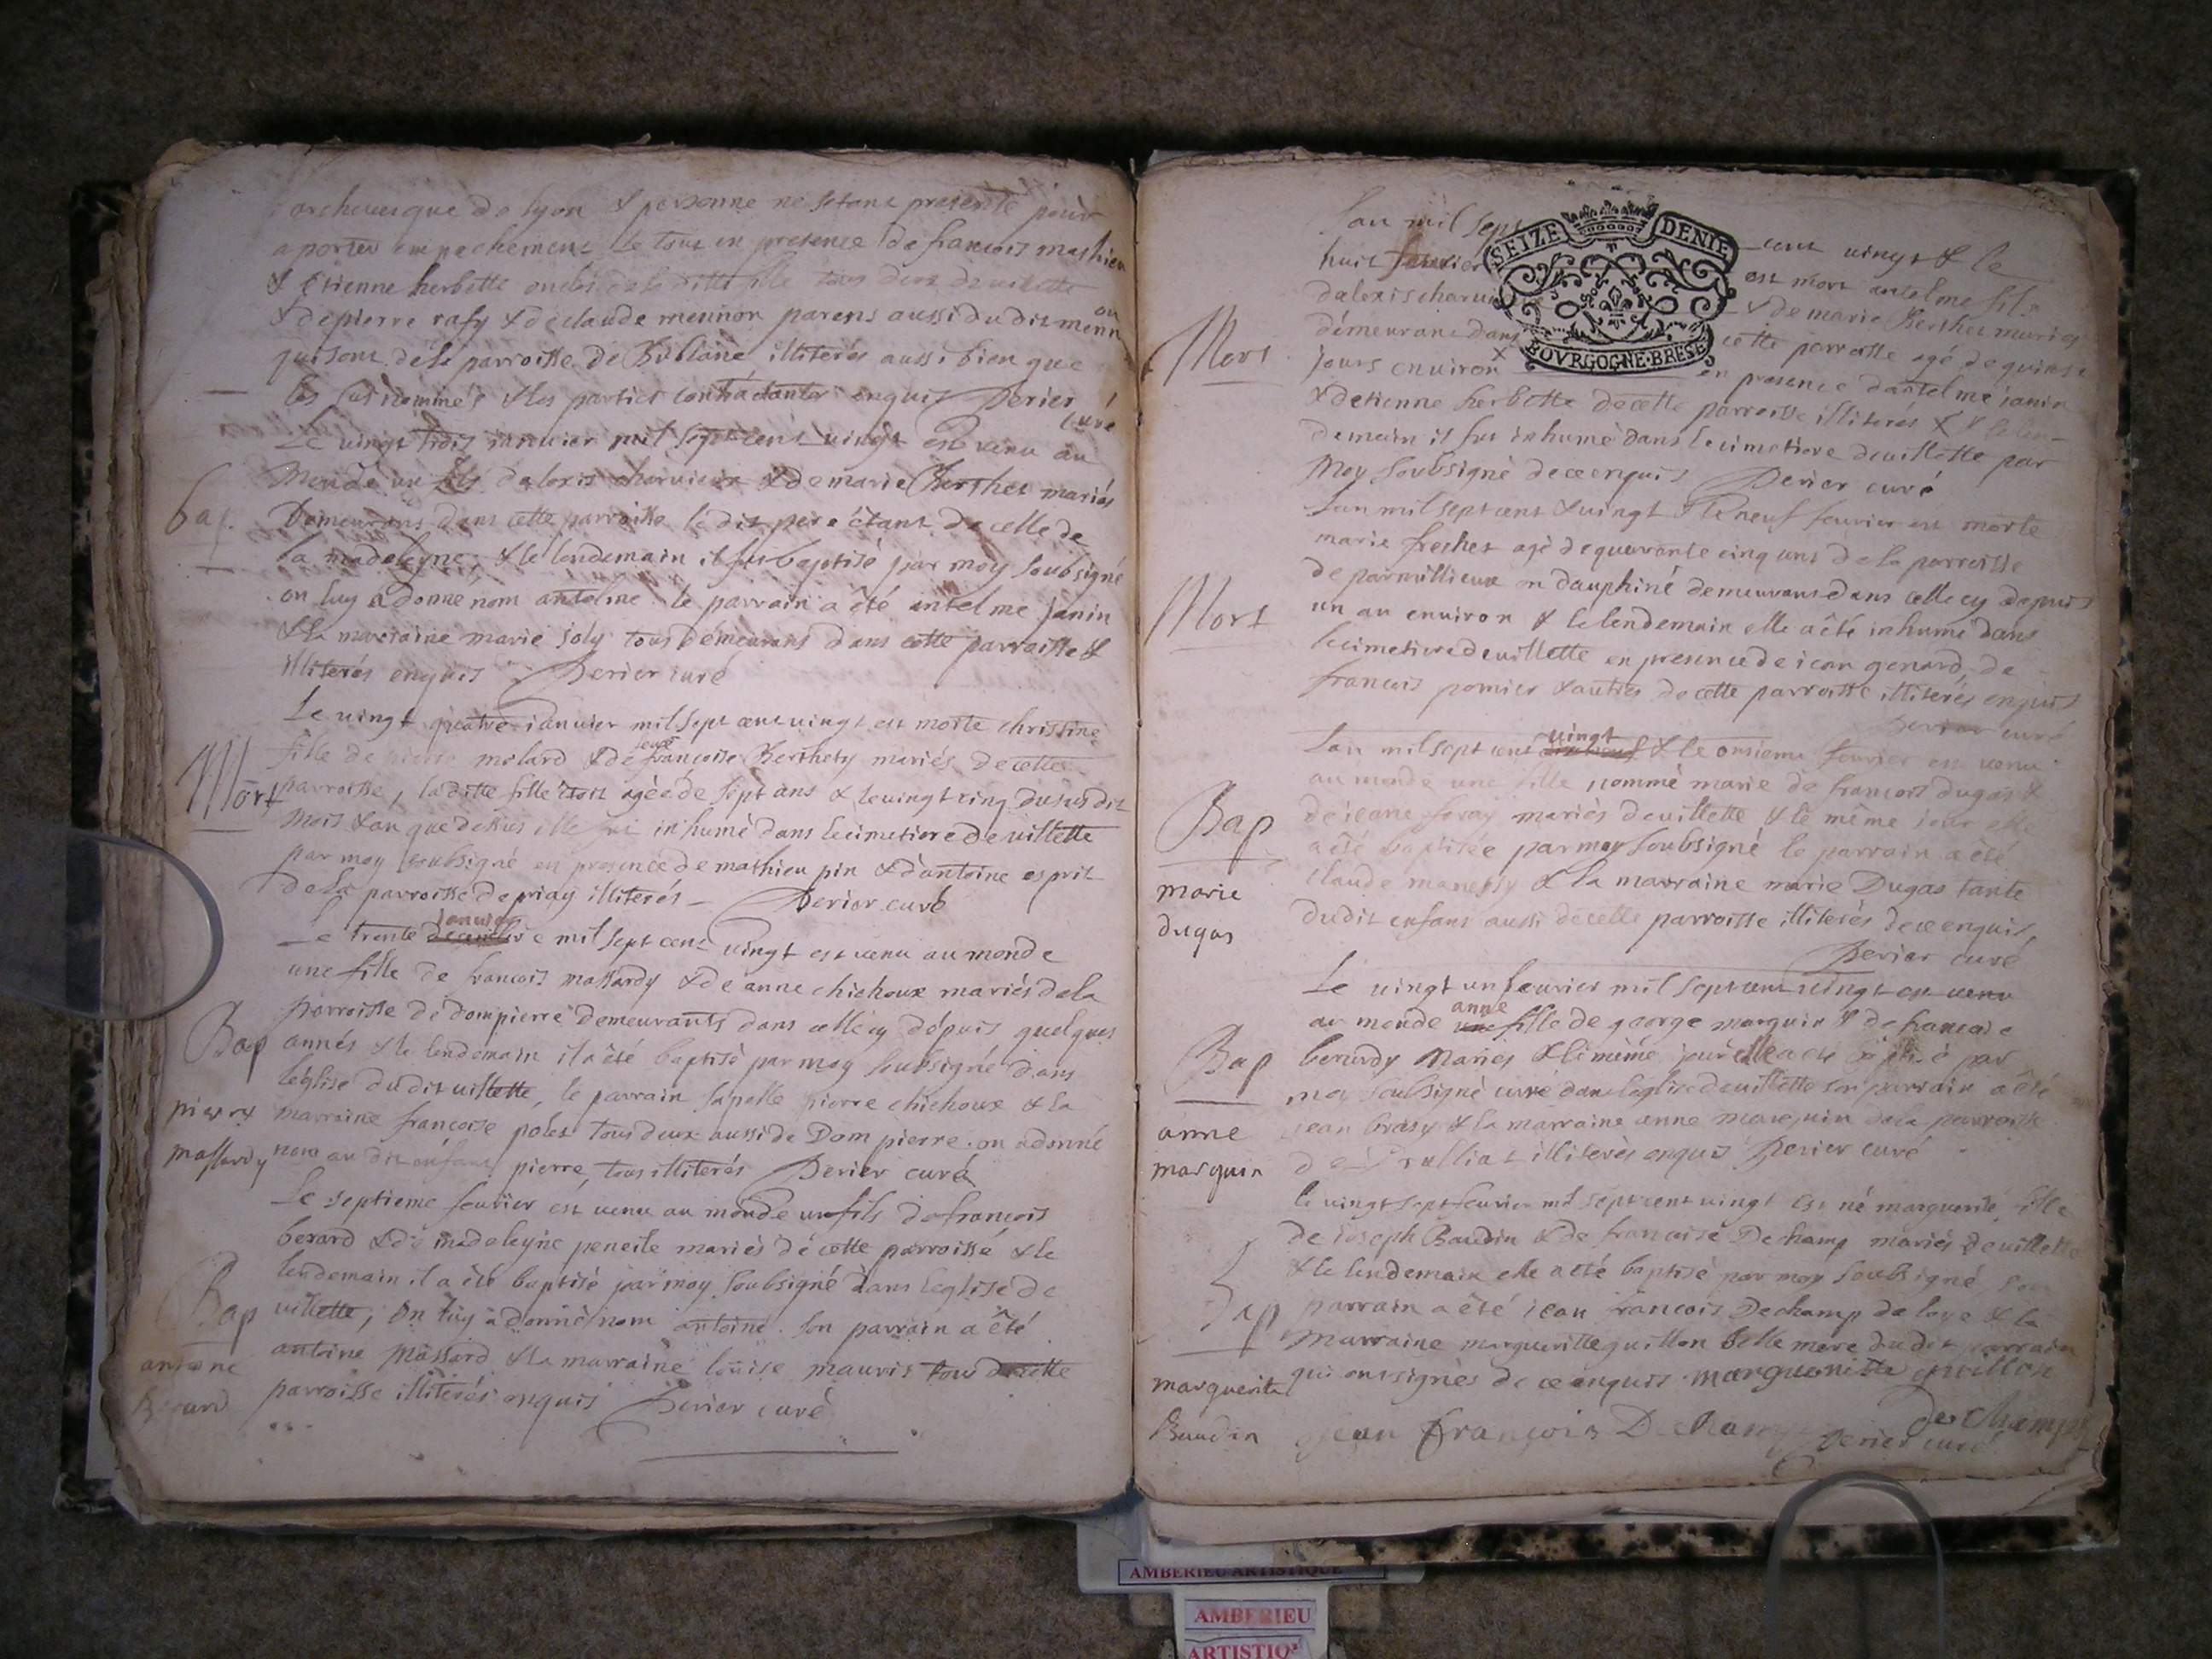 archevesque de lyon & personne ne setant presenté pour
aporter empechement le tout en presence de francois mathieu
& etienne herbette oncles de la ditte fille tous deux de villette
& de pierre rafy & de claude meunon parens aussi du dit menn
on
qui sont de la parroisse de Bublane illiterés aussi bien que
les susnommés & les parties contractantes enquis Perier
curé
Le vingt trois janvier mil sept cent vingt est venu au
Monde un fils dalexis charvieux & de marie Berthet mariés
bap. Demeurans dans cette parroisse le dit pere étant de celle de
la madeleyne, & le lendemain il fut baptisé par moy soubsigné
on luy a donné nom antelme le parrain a été antelme janin
& la marraine marie joly tous demeurans dans cette parroisse &
illiterés enquis Perier curé
Le vingt quatre janvier mil sept cent vingt est morte christine
fille de pierre molard & de françoise Berthety mariés de cette
Mort parroisse, laditte fille étoit agèe de sept ans & le vingt cinq du susdit
Mois & an que dessus elle fut inhumé dans le cimetiere de villette
par moy soubsigné en presence de mathieu pin & d'antoine esprit
de la parroisse de priay illiterés Perier curé
janvier
Le trente decembre mil sept cent vingt est venu au monde
une fille de francois massardy & de anne chichoux mariés de la
parroisse de dompierre demeurants dans celle cy depuis quelques
Bap annés & le lendemain il a été baptisé par moy soubsigné dans
léglise du dit villette, le parrain sapelle pierre chichoux & la
pierre marraine francoise polet tous deux aussi de Dompierre. on a donné
massardy nom au dit enfant pierre, tous illiterés Perier curé
Le septieme fevrier est venu au monde un fils de francois
berard & de madeleyne peneile mariés de cette parroisse & le
lendemain il a été baptisé par moy soubsigné dans leglise de
Bap villette, on luy a donné nom antoine. son parrain a été
antoine antoine Massard & la marraine loüise mauris tous de cette
Berard parroisse illiterés enquis Perier curé
Lan mil sept cent vingt & le
SEIZE DENIE
BOVRGOGNE·BRESE
huit fevrier est mort antelme fils
dalexis charvieux & de marie Berthet mariés
Mort demeurant dans cette parroisse agé de quinse
jours environ en presence dantelme janin
& detienne herbette de cette parroisse illiterés & le len
demain il fut inhumé dans le cimetiere de villette par
Moy soubsigné de ce enquis Perier curé
Lan mil sept cent & vingt & le neuf fevrier est morte
marie frechet agé de quarante cinq ans de la parroisse
de parmillieux en dauphiné demeurans dans celle cy depuis
Mort un an environ & le lendemain elle a été inhumé dans
le cimetiere de villette en presence de jean genard, de
francois pomier & autres de cette parroisse illiterés enquis
Perier curé
vingt
Lan mil sept cent & le onsieme fevrier est venu
au monde une fille nommé marie de francois dugas &
Bap de jeane foray mariés de villette & le même jour elle
a été baptisée par moy soubsigné le parrain a été
marie claude & la marraine marie Dugas tante
dugas dudit enfant aussi de cette parroisse illiterés de ce enquis
Perier curé
Le vingt un fevrier mil sept cent vingt est venu
anne
au monde une fille de george marguin & de francoise
Bap berardy Mariés & le même jour elle a été baptisé par
moy soubsigné curé dans leglise de villette son parrain a été
anne jean brasy & la marraine anne marguin de la parroisse
marguin de Drulliat illiterés enquis Perier curé
le vingt sept fevrier mil sept cent vingt est né marguerite fille
de joseph Baudin & de francoise Dechamp mariés de villette
& le lendemain elle a été baptisé par moy soubsigné, son
Bap parrain a été jean francois Dechamp de loye & la
marraine marguerilte guillon belle mere dudit parrain
marguerite qui ont signés de ce enquis. marguerite guillon
Baudin jean françois Decham deschamps
Perier curé
AMBERIEU ARTISTIQUE
AMBERIEU
ARTISTIQ